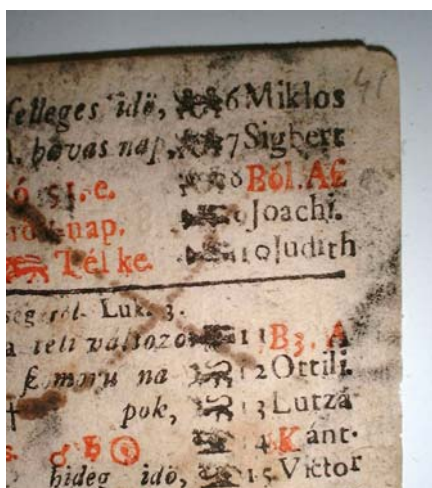 felleges idö, 6 Miklos 41
havas nap, 7 Sigbert
51. e. 8 Ból. Af
nap. 9 Joachi.
Tél ke. 10 Judith
Luk. 3.
a teli változo 11 B3. A
na 12 Ottili.
† pok, 13 Lutzá
♂ ♄ ☉ 14 Kánt.
hideg idö, 15 Victor